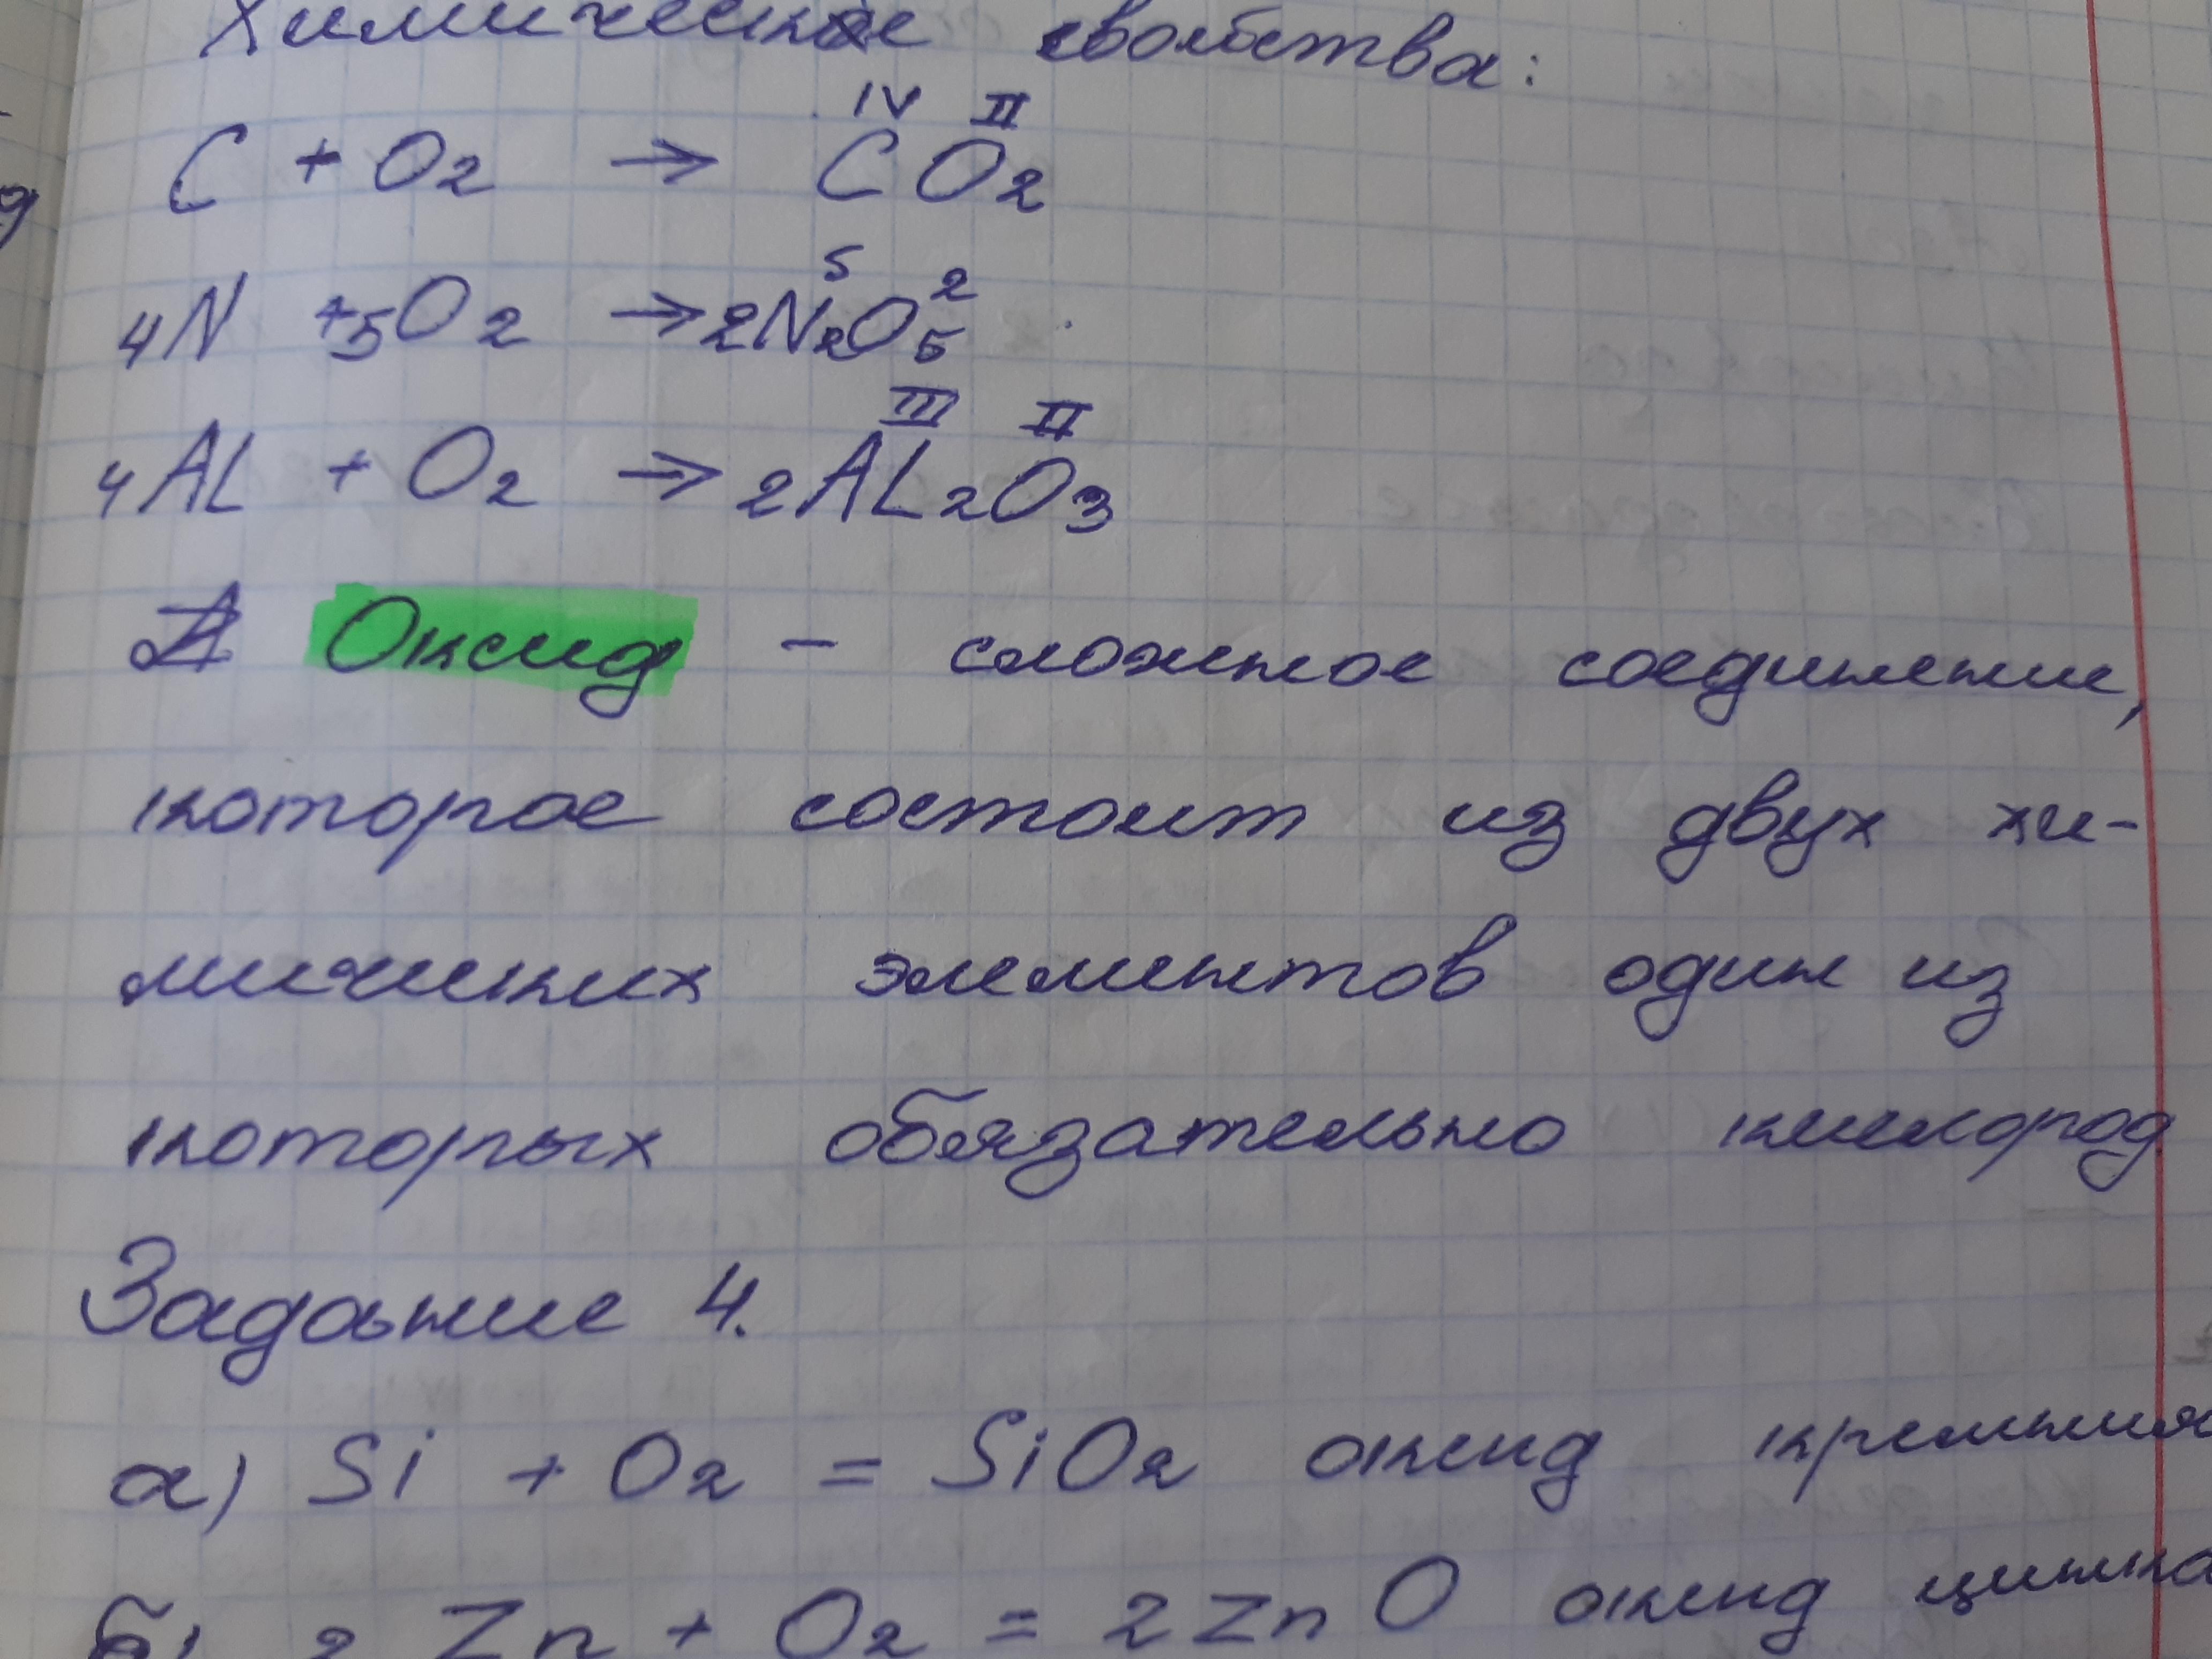 Химические свойства:
IV II
C + O2 → CO2
5 2
4N +5O2 → 2N2O5
III II
4AL + O2 → 2AL2O3
Оксид - сложное соединение,
которое состоит из двух хи-
мических элементов один из
которых обязательно кислород
Задание 4.
а) Si + O2 = SiO2 оксид кремния
б) 2 Zn + O2 = 2ZnO оксид цинка